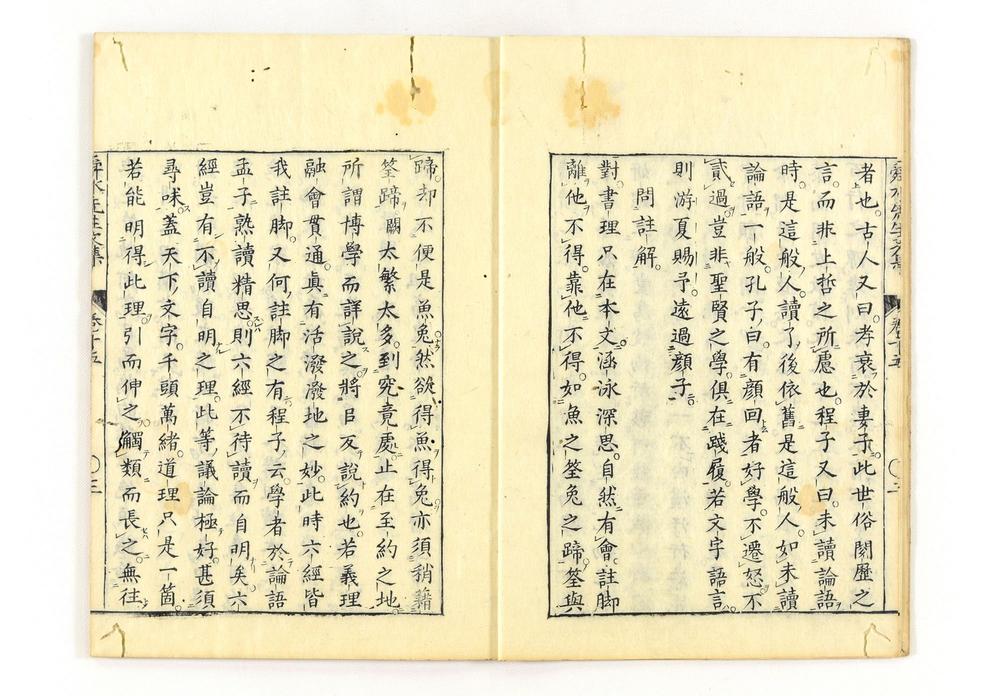 者也古人又曰孝衰於妻子此世俗閱歷之
言而非上哲之所慮也程子又曰未讀論語
時是這般人讀了後依舊是這般人如未讀
論語一般孔子曰有顏回者好學不遷怒不
貳過豈非聖賢之學俱在踐履若文字語言
則游夏賜予遠過顏子
問註解
對書理只在本文涵泳深思自然有會註脚
離他不得靠他不得如魚之筌兔之蹄筌與
蹄却不便是魚兔然欲得魚得兔亦須稍籍
筌蹄關太繁太多到究竟處止在至約之地
所謂博學而詳說之將㠯反說約也若義理
融會貫通眞有活潑潑地之妙此時六經皆
我註脚又何註脚之有程子云學者於論語
孟子熟讀精思則六經不待讀而自明矣六
經豈有不讀自明之理此等議論極好甚須
尋味蓋天下文字千頭萬緒道理只是一箇
若能明得此理引而伸之觸類而長之無往
舜水先生文集 卷十五 〇三